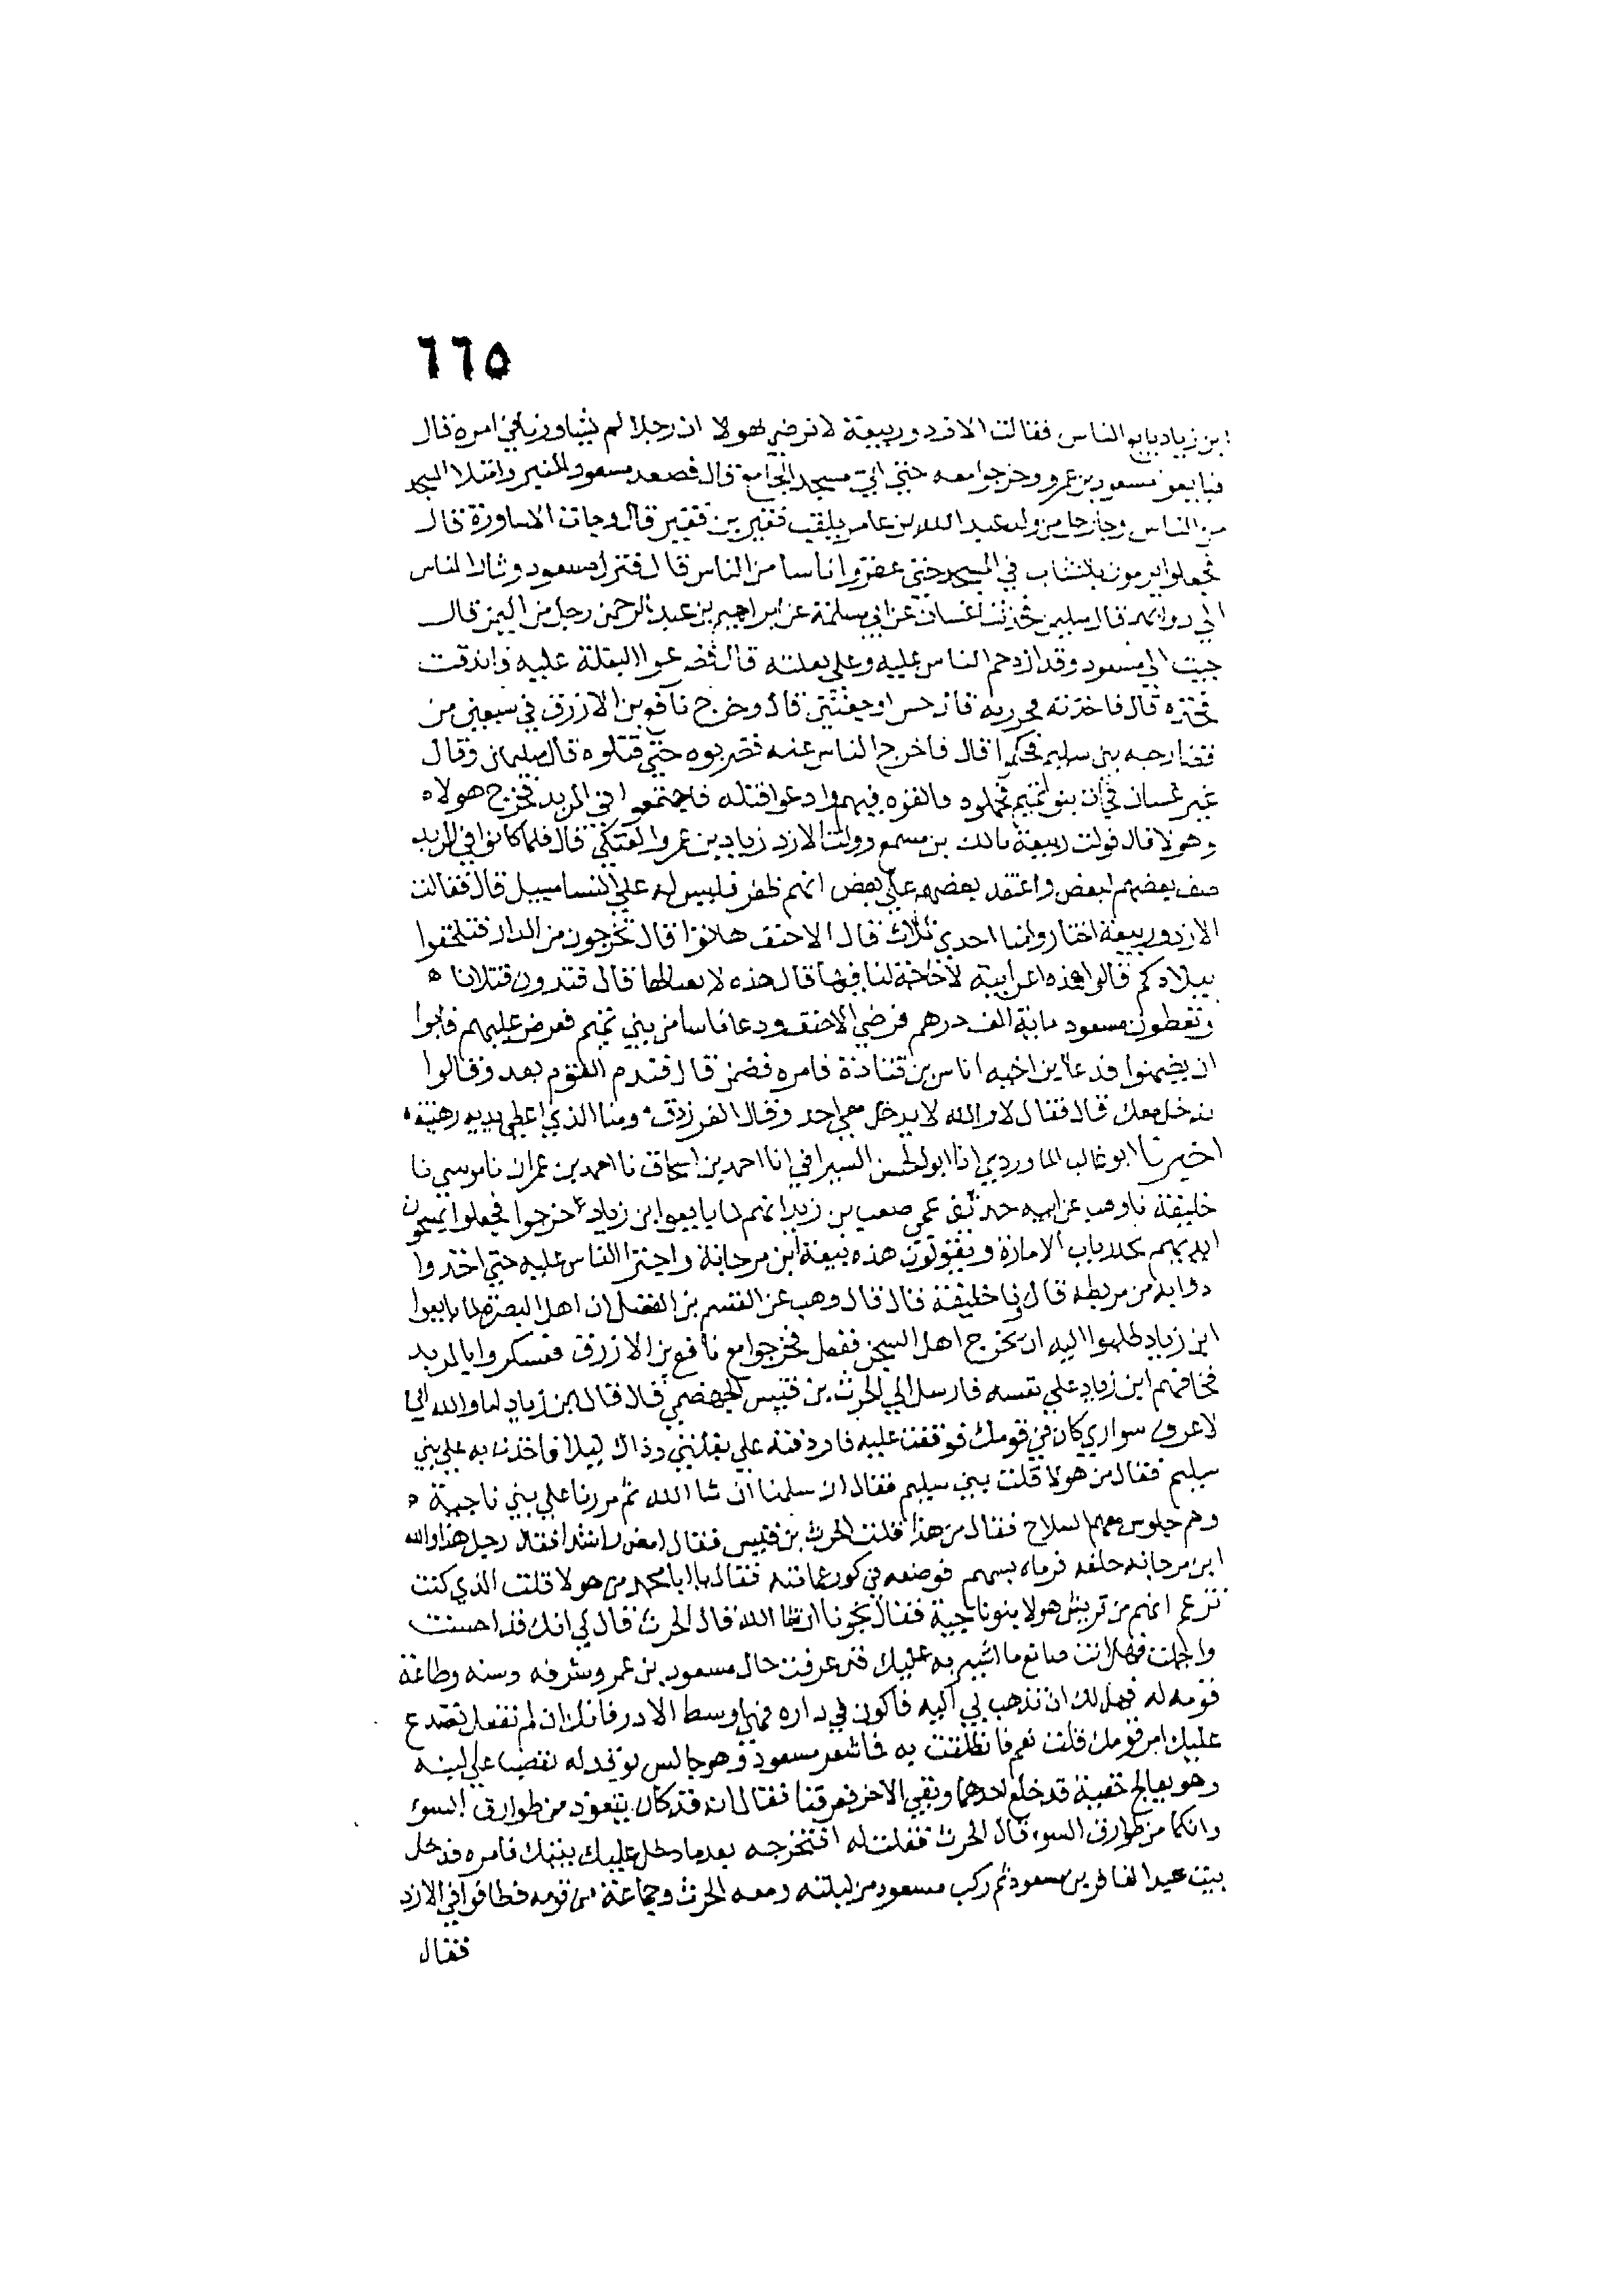 ٦٦٥
ابن زياد بايع الناس فقالت الازد وربيعة لا نرضي لهولا ان رجلا لم يشاورنا في امره قال
فبايعو مسعود بن عمرو وخرجوا معه حتي اتي مسجد الجامع قال فصعد مسعود المنبر وامتلا المسجد
من الناس وجا رجا من ولد عبد الله بن عامر يلقب فقير بن فقير قال وجات الاساورة قال
فجعلوا يرمون بالنشاب في المسجد حتي عقروا اناسا من الناس قال فنزل مسعود وثار الناس
الي دوابهم قال سليمن فحدثت غسان عن ابي سلمة عن ابراهيم بن عبد الرحمن رجل من اليمن قال
جيت الي مسعود وقد ازدحم الناس عليه وعلي بغلته قال البغلة عليه واندقت
قال فاخذته قال وخرج نافع بن الازرق في سبعين من
بني سليم قال فاخرج الناس عنه فضربوه حتي قتلوه قال سليمان وقال
غير غسان بنو تميم والقوه فيهم وادعوا قتله فاجتمعوا في المربد فخرج هولاء
وهولا قال فولت ربيعة مالك بن مسمع وولت الازد زياد بن عمرو العتكي قال فلما كانوا في المربد
صف بعضهم لبعض واعتقد بعضهم علي بعض انهم ظفر فليس له علي النسا سبيل قال فقالت
الازد وربيعة اختاروا منا احدي ثلاث قال الاحنف هاتوا قال تخرجون من الدار فتلحقوا
ببلادكم قالوا هذه اعرابية لا حاجة لنا فيها قال هذه لا قال فتدون قتلانا
وتعطون مسعود ماية الف درهم فرضي الاحنف ودعا ناسا من بني تميم فعرض عليهم فابوا
ان يضمنوا فدعا بن اخيه اناس بن قتادة فامره فضمن قال فندم القوم بعد وقالوا
ندخل معك قال فقال لا والله لا يدخل معي احد وقال الفرزدق ومنا الذي اعطي يديه رهينة
اخبرنا ابو غالب الماوردي انا ابو الحسن السيرافي انا احمد بن اسحاق نا احمد بن عمران نا موسي نا
خليفة نا وهب عن ابيه حدثني عمي صعب بن زيد انهم لما بايعوا ابن زياد خرجوا فجعلوا يمسحون
ايديهم بجدر باب الامارة ويقولون هذه بيعة ابن مرجانة واجترا الناس عليه حتي اخذوا
دوابه من مربطه قال ونا خليفة قال قال وهب عن القسم بن الفضل ان اهل البصرة لما بايعوا
ابن زياد طلبوا اليه ان يخرج اهل السجن ففعل فخرجوا مع نافع بن الازرق فعسكروا بالمربد
فخافهم ابن زياد علي نفسه فارسل الي الحرث بن قيس الجهضمي قال فقال ابن زياد اما والله اني
لاعرف سواري كان في قومك فوقفت عليه فاردفته علي بغلتي وذاك ليلا فاخذت به علي بني
سليم فقال من هولا قلت بني سليم فقال ان سلمنا ان شا الله ثم مررنا علي بني ناجية
وهم جلوس معهم السلاح فقال من هذا قلت الحرث بن قيس فقال امض راشدا فقال رجل هذا والله
ابن مرجانة خلفه فرماه بسهم فوضعه في كور عمامته فقال يا ابا محمد من هولا قلت الذي كنت
تزعم انهم من قريش هولا بنو ناجية فقال نجونا ان شا الله قال الحرث قال لي انك قد احسنت
واجملت فهل انت صانع ما اشير به عليك قد عرفت حال مسعود بن عمرو وشرفه وسنه وطاعة
قومه له فهل لك ان تذهب بي اليه فاكون في داره فهي وسط الازد فانك ان لم تفعل تصدع
عليك امر قومك قلت نعم فانطلقت به فما شعر مسعود وهو جالس يوقد له بقضيب علي لبنة
وهو يعالج خفيه قد خلع احدهما وبقي الاخر فعرفنا فقال انه قد كان يتعوذ من طوارق السوء
وانكما من طوارق السوء قال الحرث فقلت له افتخرجه بعد ما دخل عليك بيتك فامره فدخل
بيت عبد الغافر بن مسعود ثم ركب مسعود من ليلته ومعه الحرث وجماعة من قومه فطافوا في الازد
فقال